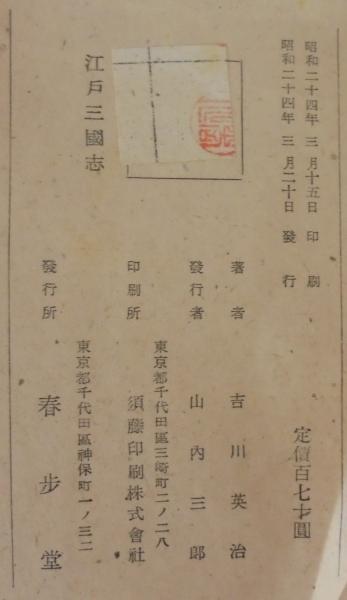 昭和二十四年 三月十五日 印刷
昭和二十四年 三月二十日 發行
定價百七十圓
著者 吉川英治
發行者 山內三郎
東京都千代田區三崎町二ノ二八
印刷所 須藤印刷株式會社
江戸三國志
東京都千代田區神保町一ノ三二
發行所 春步堂